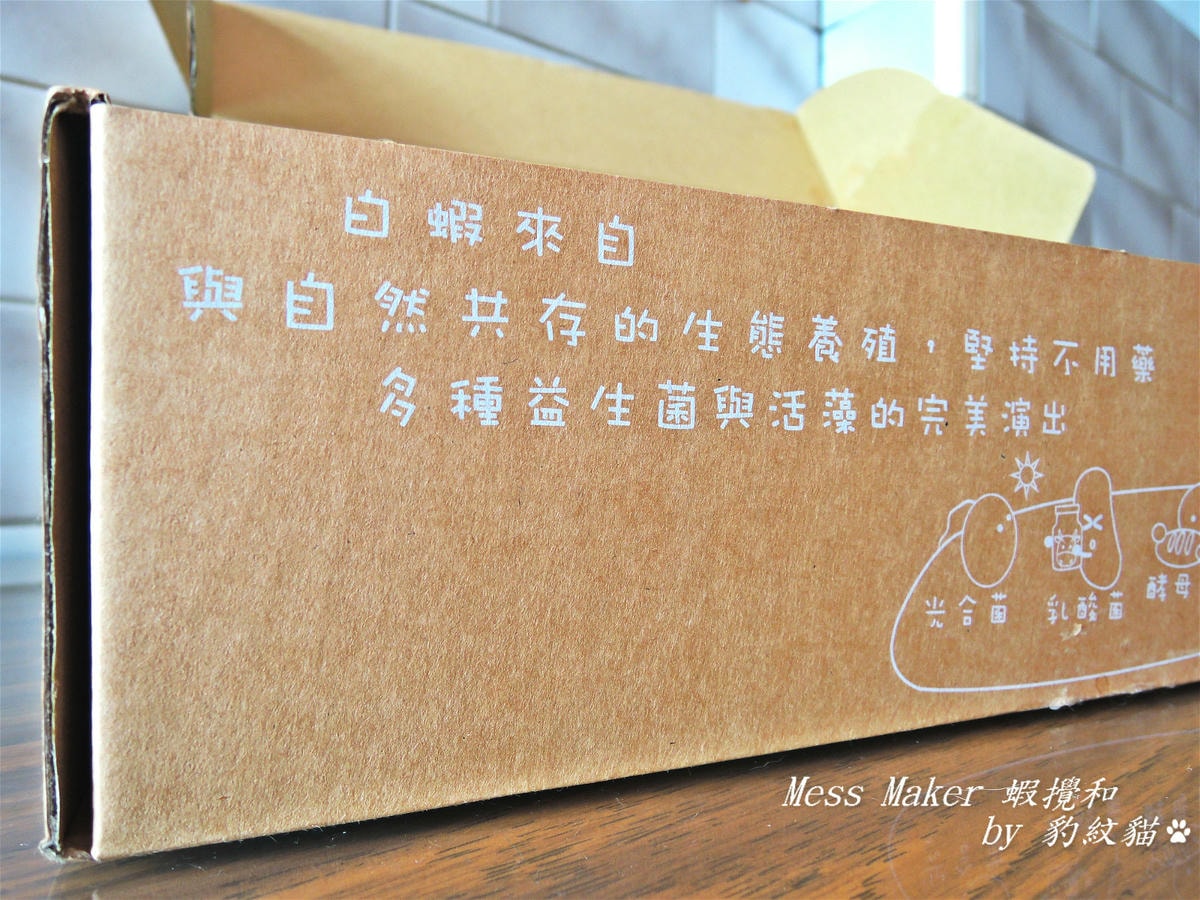 白蝦來自
與自然共存的生態養殖，堅持不用藥
多種益生菌與活藻的完美演出
光合菌 乳酸菌 酵母
Mess Maker 蝦攪和
by 豹紋貓